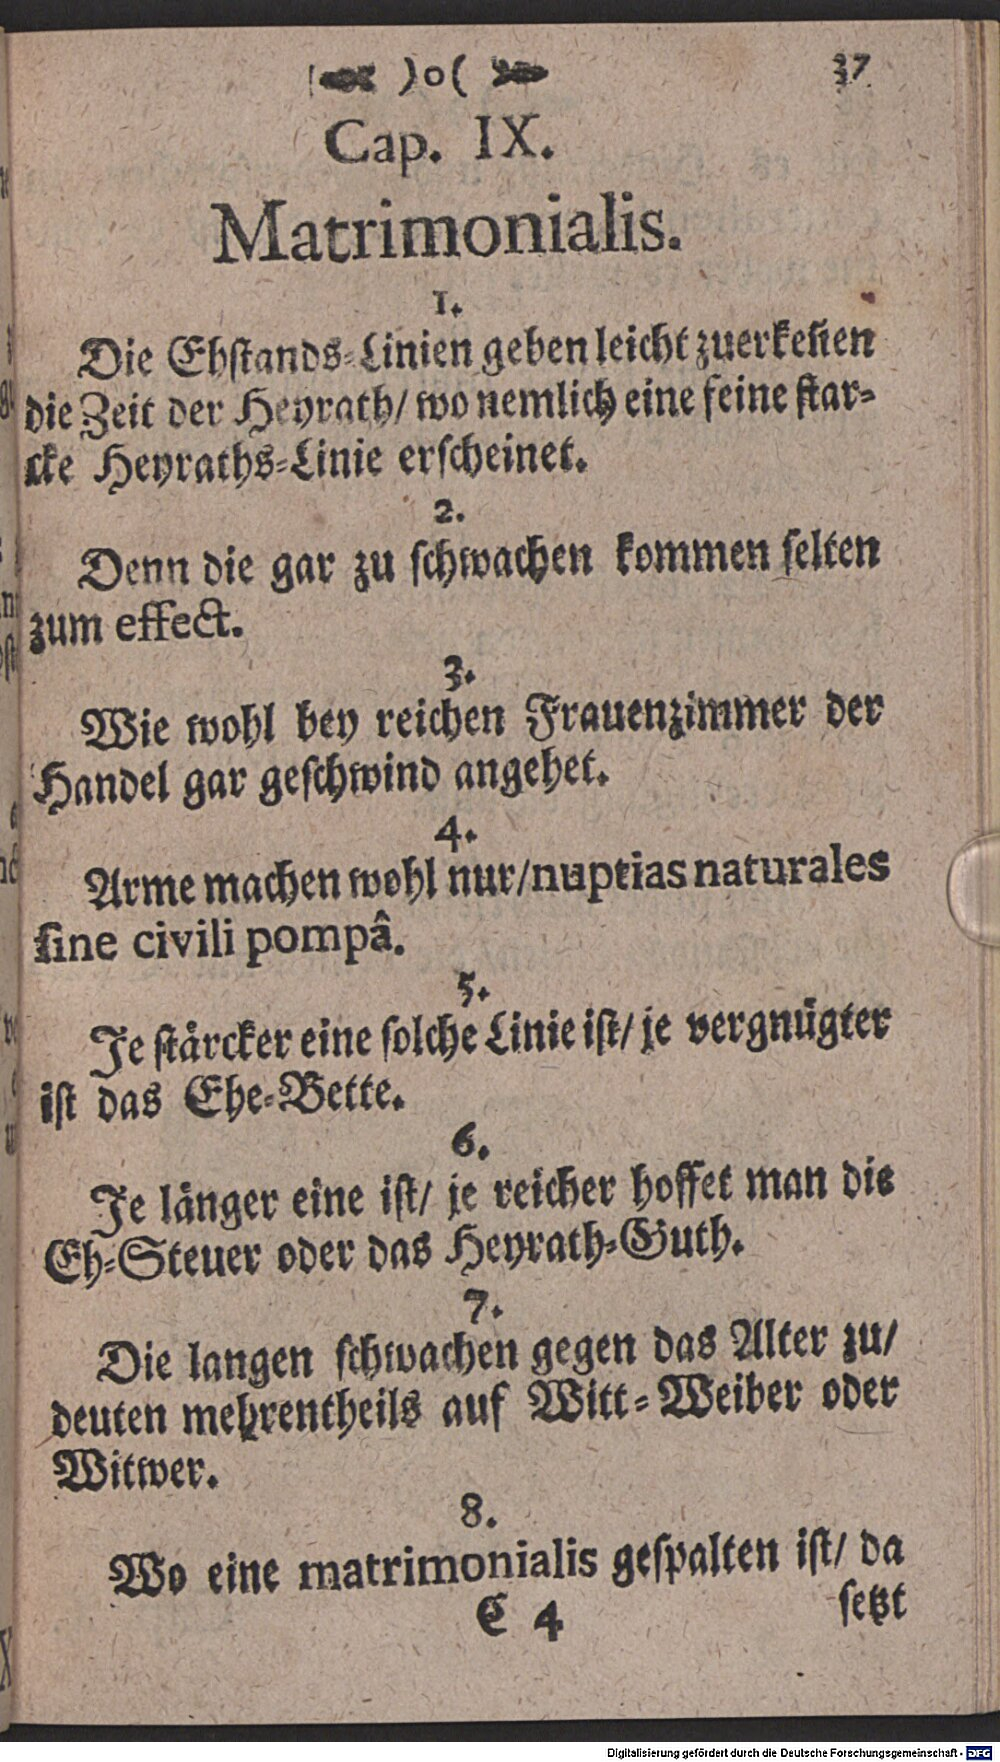 )o( 37
Cap. IX.
Matrimonialis.
1.
Die Ehstands-Linien geben leicht zuerkeñen
die Zeit der Heyrath/ wo nemlich eine feine star-
cke Heyraths-Linie erscheinet.
2.
Denn die gar zu schwachen kommen selten
zum effect.
3.
Wie wohl bey reichen Frauenzimmer der
Handel gar geschwind angehet.
4.
Arme machen wohl nur/ nuptias naturales
sine civili pompâ.
5.
Je stärcker eine solche Linie ist/ je vergnügter
ist das Ehe-Bette.
6.
Je länger eine ist/ je reicher hoffet man die
Eh-Steuer oder das Heyrath-Guth.
7.
Die langen schwachen gegen das Alter zu/
deuten mehrentheils auf Witt-Weiber oder
Witwer.
8.
Wo eine matrimonialis gespalten ist/ da
C 4 setzt
Digitalisierung gefördert durch die Deutsche Forschungsgemeinschaft - DFG